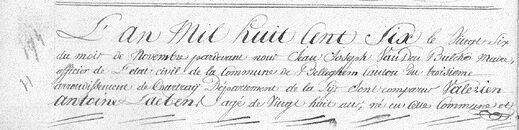 L'an Mil huit Cent Six le Vingt Six
du mois de Novembre pardevant nous Jean Joseph Vanden Bulcke Maire,
officier de l'état civil de la commune de Belleghem canton du troisieme
arrondissement de Courtray Département de la Lys Sont comparus Valerien
antoine Laebens agé de Vingt huit ans, né en cette Commune et